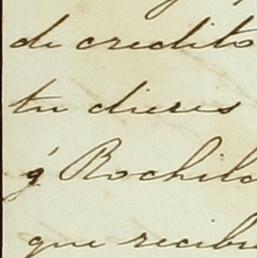 de credito
tu dieres
q' Rochild
que recibi